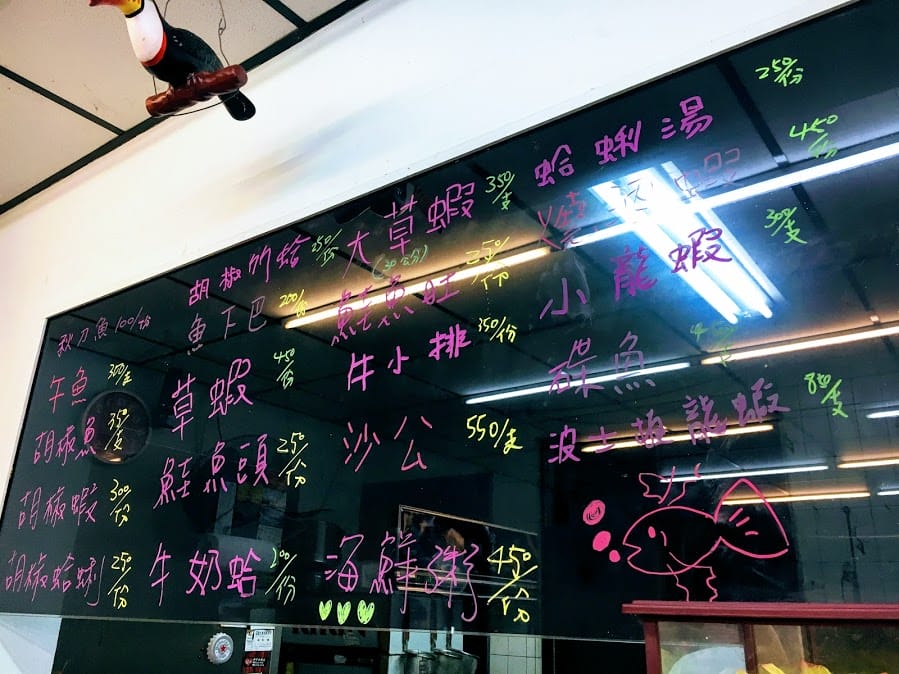 秋刀魚 100/份
午魚 300/支
胡椒魚 350/支
胡椒蝦 300/份
胡椒蛤蜊 250/份
胡椒竹蛤 250/份
魚下巴 200/份
草蝦 450/份
鮭魚頭 250/份
牛奶蛤 200/份
大草蝦 350/支
鮭魚肚 250/份
牛小排 350/份
沙公 550/支
海鮮粥 450/份
蛤蜊湯 250/份
燒酒蝦 450/份
小龍蝦 300/支
碟魚
波士頓龍蝦 850/支